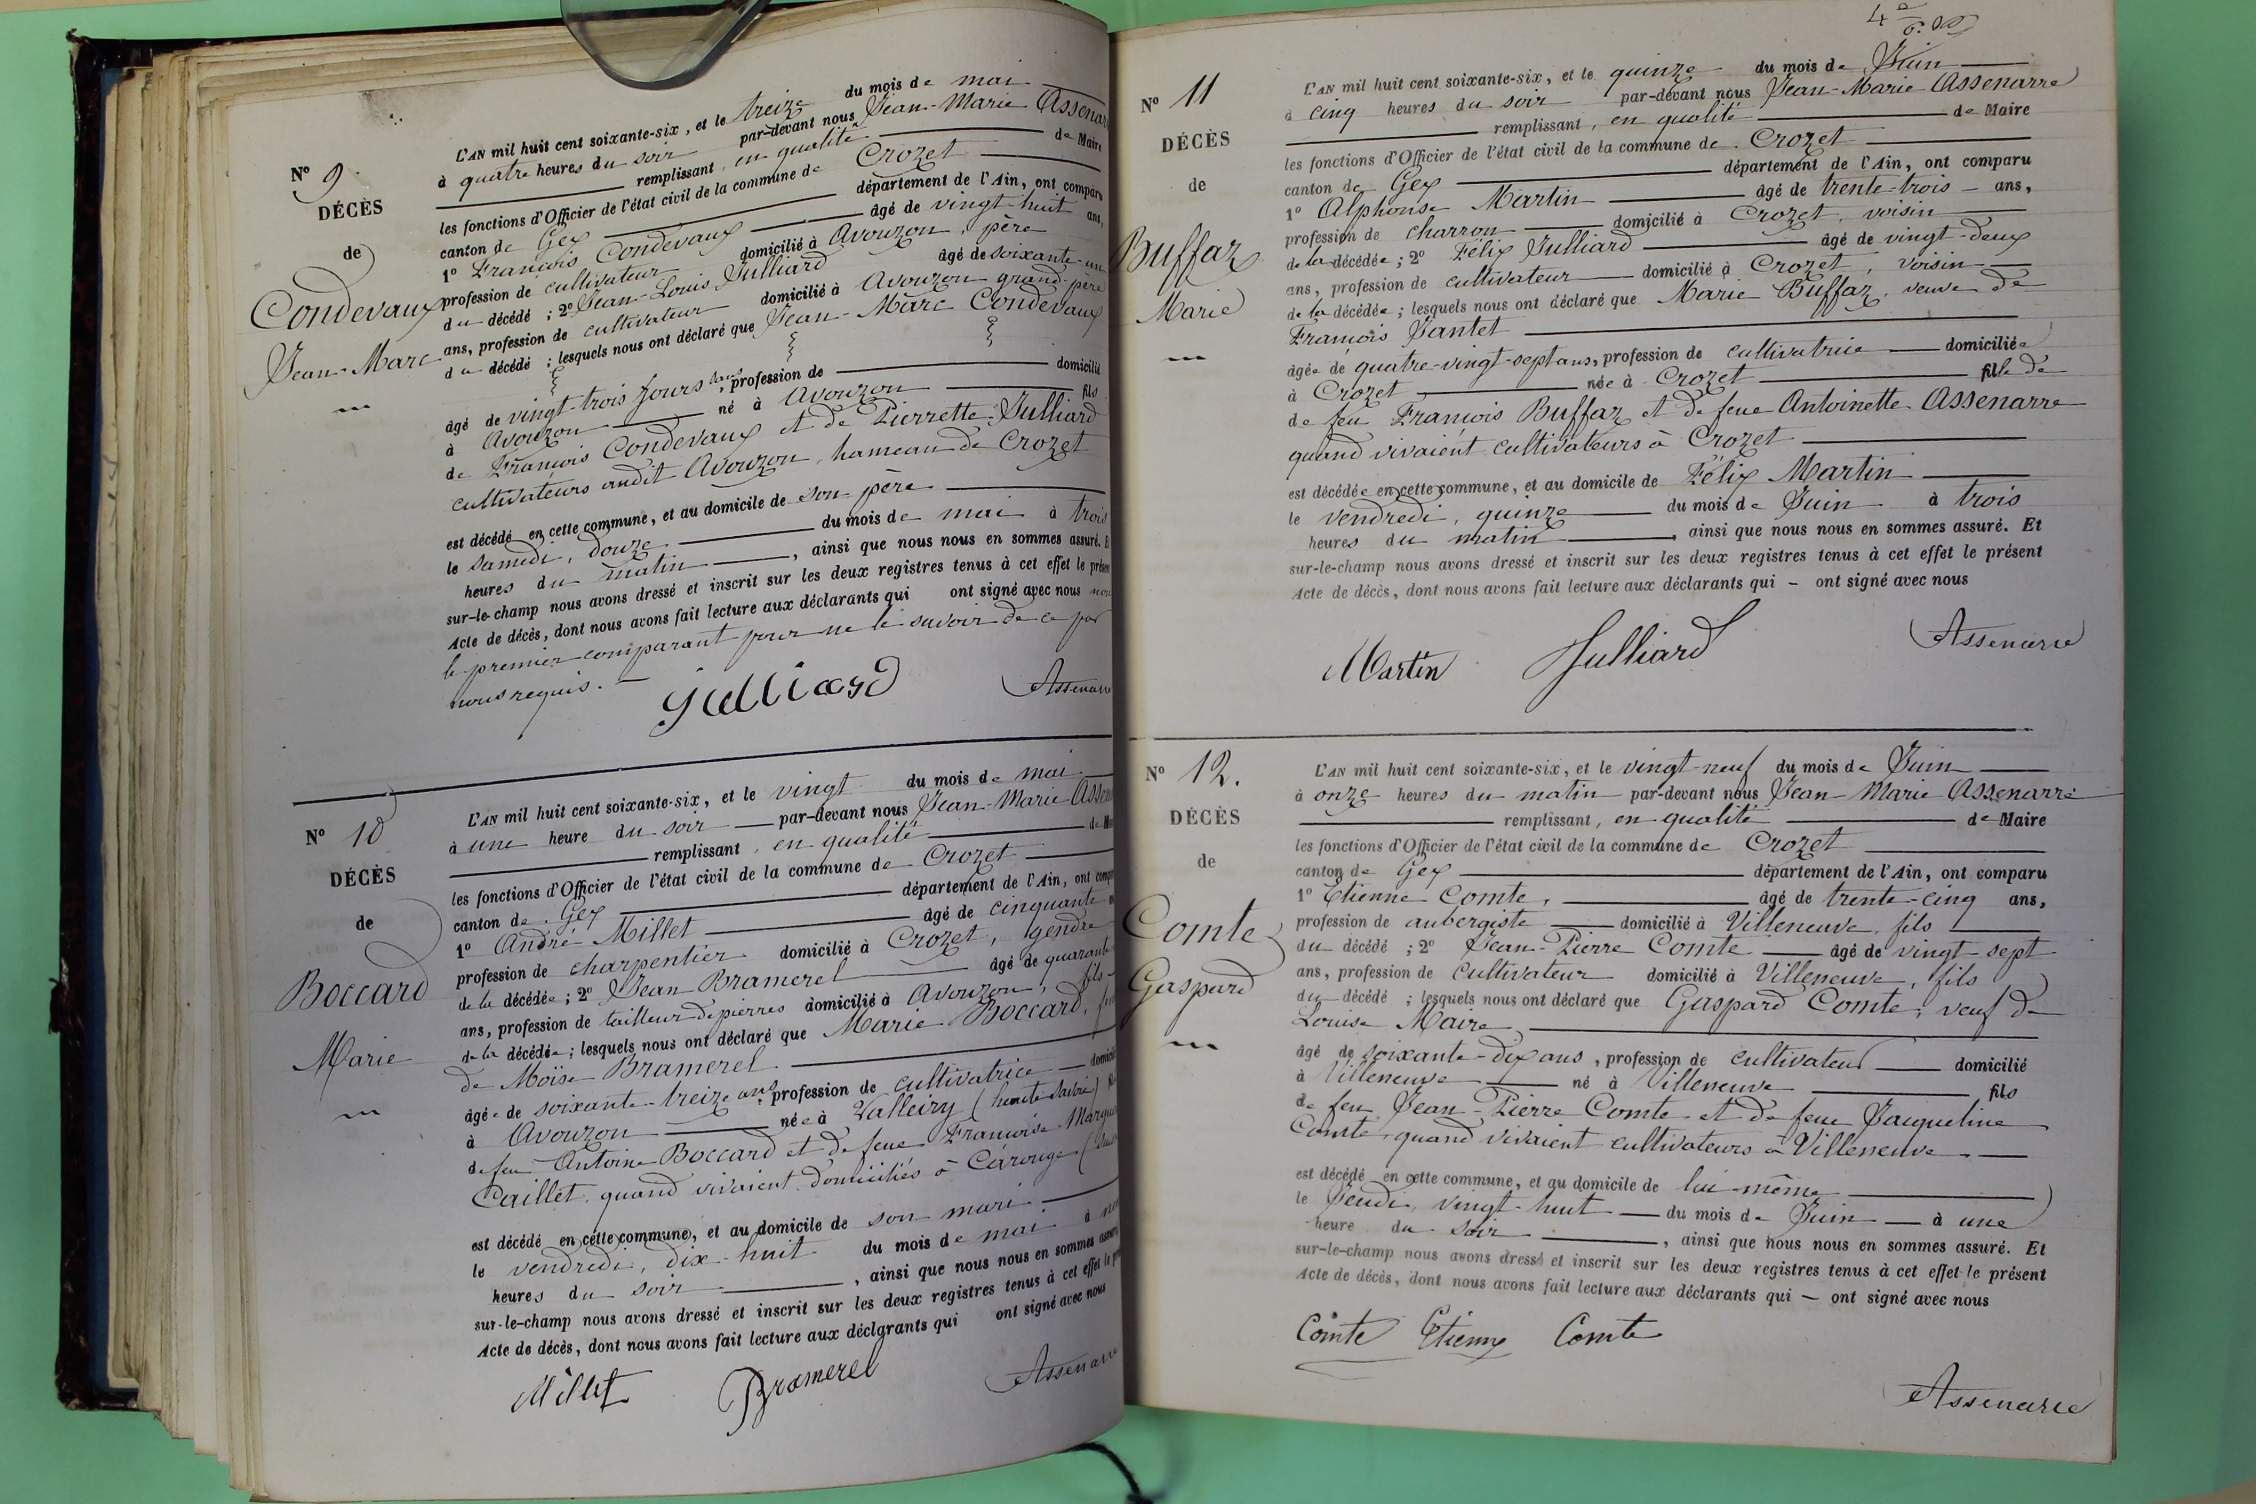 Nº 9.
DÉCÈS
de
Condevaux
Jean-Marc
L'AN mil huit cent soixante-six, et le treize du mois de mai
à quatre heures du soir par-devant nous Jean-Marie Assenar
remplissant, en qualité de Maire
les fonctions d'Officier de l'état civil de la commune de Crozet
canton de Gex département de l'Ain, ont comparu
1º François Condevaux âgé de vingt-huit ans,
profession de cultivateur domicilié à Avouzon, père
du décédé ; 2º Jean-Louis Julliard âgé de soixante-un
ans, profession de cultivateur domicilié à Avouzon grand-père
du décédé ; lesquels nous ont déclaré que Jean-Marc Condevaux
âgé de vingt-trois jours, sans profession de domicilié
à Avouzon né à Avouzon fils
de François Condevaux et de Pierrette Julliard
cultivateurs audit Avouzon, hameau de Crozet
est décédé en cette commune, et au domicile de son père
le samedi, douze du mois de mai à trois
heures du matin, ainsi que nous nous en sommes assuré. Et
sur-le-champ nous avons dressé et inscrit sur les deux registres tenus à cet effet le présent
Acte de décès, dont nous avons fait lecture aux déclarants qui ont signé avec nous non
le premier comparant pour ne le savoir de ce par
nous requis.
Julliard Assenarre
Nº 10
DÉCÈS
de
Boccard
Marie
L'AN mil huit cent soixante-six, et le vingt du mois de mai
à une heure du soir par-devant nous Jean-Marie Assen
remplissant, en qualité de Maire
les fonctions d'Officier de l'état civil de la commune de Crozet
canton de Gex département de l'Ain, ont compar
1º André Millet âgé de cinquante
profession de charpentier domicilié à Crozet, gendre
de la décédée ; 2º Jean Bramerel âgé de quarante
ans, profession de tailleur de pierres domicilié à Avouzon, fils
de la décédée ; lesquels nous ont déclaré que Marie Boccard,
de Moïse Bramerel
âgée de soixante-treize ans, profession de cultivatrice domicilié
à Avouzon née à Valleiry (haute Savoie)
de feu Antoine Boccard et de feue Françoise
Caillet, quand vivaient domiciliés à Carouge
est décédé en cette commune, et au domicile de son mari
le vendredi, dix-huit du mois de mai à
heures du soir, ainsi que nous nous en sommes assuré
sur-le-champ nous avons dressé et inscrit sur les deux registres tenus à cet effet le
Acte de décès, dont nous avons fait lecture aux déclarants qui ont signé avec nous
Millet Bramerel Assenarre
Nº 11
DÉCÈS
de
Buffaz
Marie
L'AN mil huit cent soixante-six, et le quinze du mois de Juin
à cinq heures du soir par-devant nous Jean-Marie Assenarre
remplissant, en qualité de Maire
les fonctions d'Officier de l'état civil de la commune de Crozet
canton de Gex département de l'Ain, ont comparu
1º Alphonse Martin âgé de trente-trois ans,
profession de charron domicilié à Crozet, voisin
de la décédée ; 2º Félix Julliard âgé de vingt-deux
ans, profession de cultivateur domicilié à Crozet, voisin
de la décédée ; lesquels nous ont déclaré que Marie Buffaz, veuve de
François Jantet
âgée de quatre-vingt-sept ans, profession de cultivatrice domiciliée
à Crozet née à Crozet fille de
de feu François Buffaz et de feue Antoinette Assenarre
quand vivaient cultivateurs à Crozet
est décédée en cette commune, et au domicile de Félix Martin
le vendredi, quinze du mois de Juin à trois
heures du matin, ainsi que nous nous en sommes assuré. Et
sur-le-champ nous avons dressé et inscrit sur les deux registres tenus à cet effet le présent
Acte de décès, dont nous avons fait lecture aux déclarants qui — ont signé avec nous
Martin Julliard Assenarre
Nº 12.
DÉCÈS
de
Comte
Gaspard
L'AN mil huit cent soixante-six, et le vingt-neuf du mois de Juin
à onze heures du matin par-devant nous Jean-Marie Assenarre
remplissant, en qualité de Maire
les fonctions d'Officier de l'état civil de la commune de Crozet
canton de Gex département de l'Ain, ont comparu
1º Etienne Comte, âgé de trente-cinq ans,
profession de aubergiste domicilié à Villeneuve, fils
du décédé ; 2º Jean-Pierre Comte âgé de vingt-sept
ans, profession de cultivateur domicilié à Villeneuve, fils
du décédé ; lesquels nous ont déclaré que Gaspard Comte, veuf de
Louise Maire
âgé de soixante-dix ans, profession de cultivateur domicilié
à Villeneuve né à Villeneuve fils
de feu Jean-Pierre Comte et de feue Jacqueline
Comte, quand vivaient cultivateurs à Villeneuve
est décédé en cette commune, et au domicile de lui-même
le Jeudi, vingt-huit du mois de Juin à une
heure du soir, ainsi que nous nous en sommes assuré. Et
sur-le-champ nous avons dressé et inscrit sur les deux registres tenus à cet effet le présent
Acte de décès, dont nous avons fait lecture aux déclarants qui — ont signé avec nous
Comte Etienne Comte
Assenarre